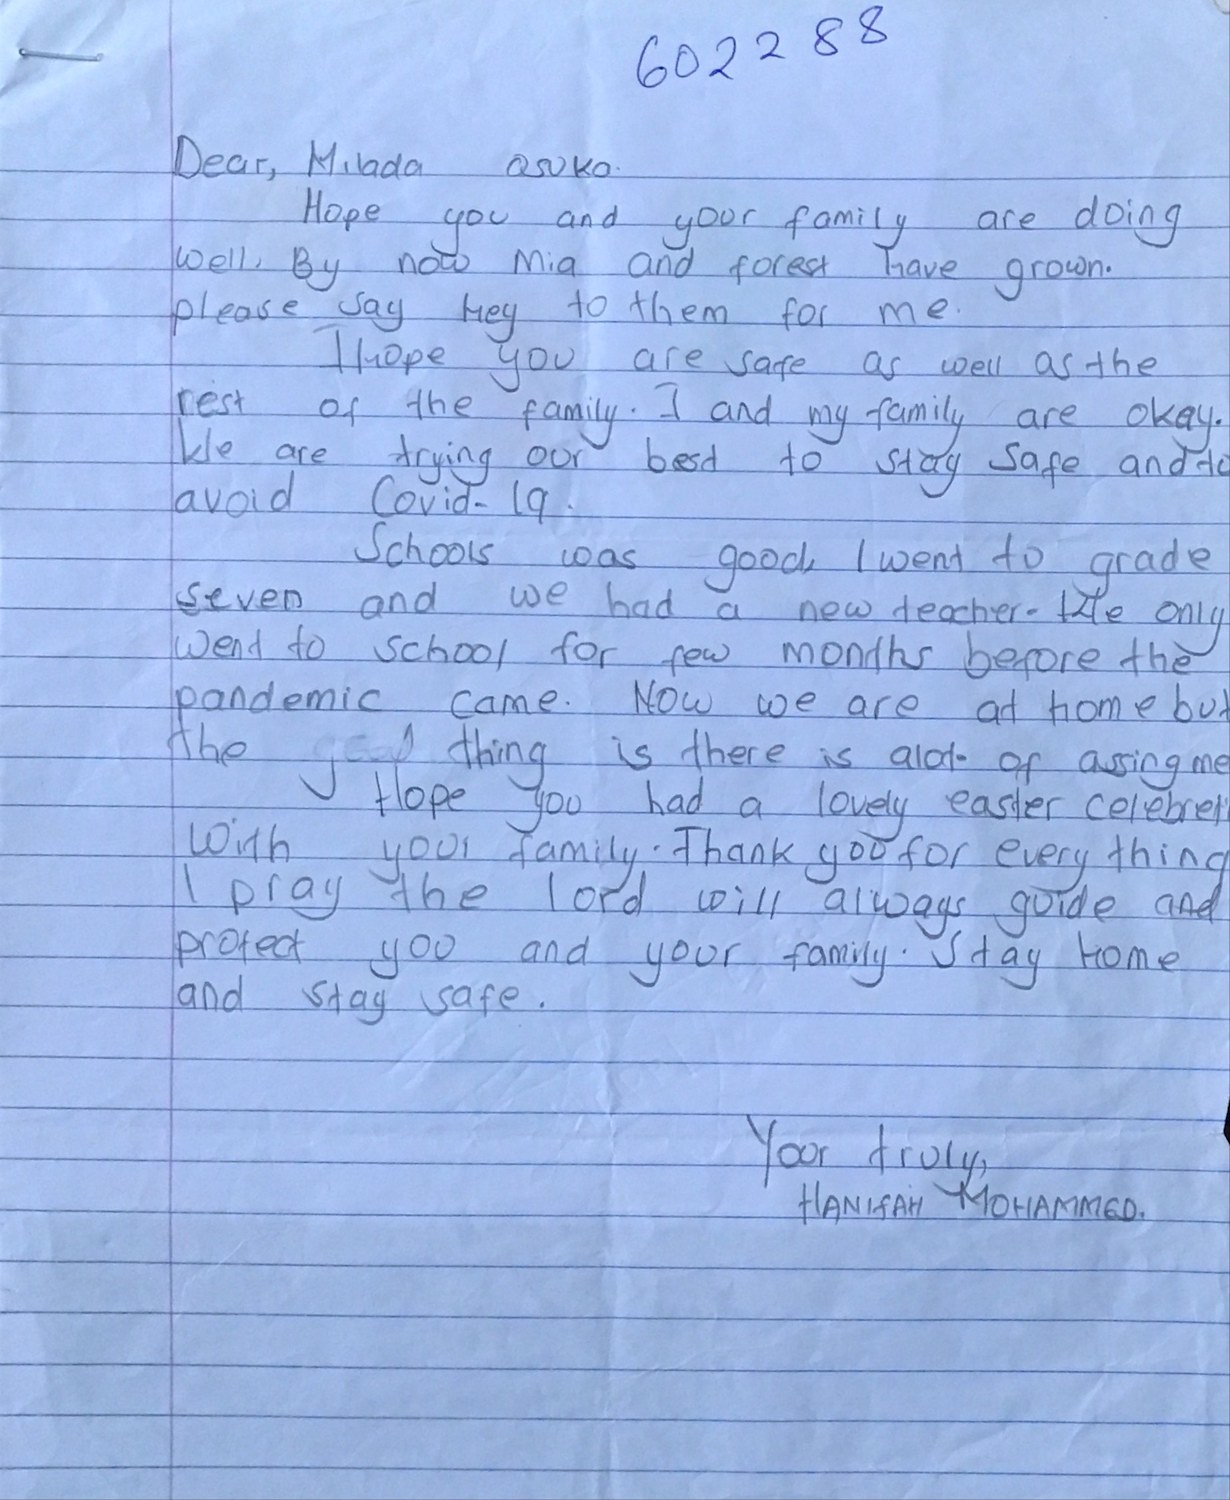 602288
Dear, Milada asuka.
Hope you and your family are doing
well. By now Mia and forest have grown.
please say hey to them for me.
I hope you are safe as well as the
rest of the family. I and my family are okay.
We are trying our best to stay safe and to
avoid Covid-19.
Schools was good, I went to grade
seven and we had a new teacher. We only
went to school for few months before the
pandemic came. Now we are at home but
the good thing is there is alot of assingme
Hope you had a lovely easter celebret
with your family. Thank you for every thing
I pray the lord will always guide and
protect you and your family. Stay home
and stay safe.
Your truly,
HANIFAH MOHAMMED.